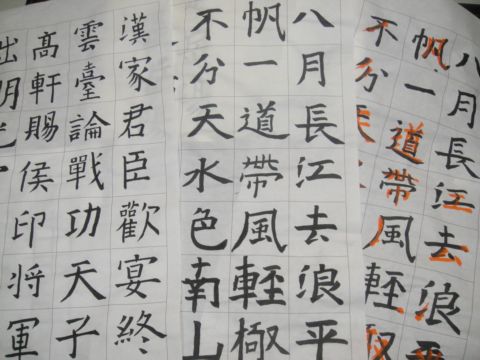 八月長江去浪
帆一道帶風輕
不分
八月長江去浪平
帆一道帶風輕極
不分天水色南山
漢家君臣歡宴終
雲臺論戰功天子
高軒賜侯印将軍
出明光